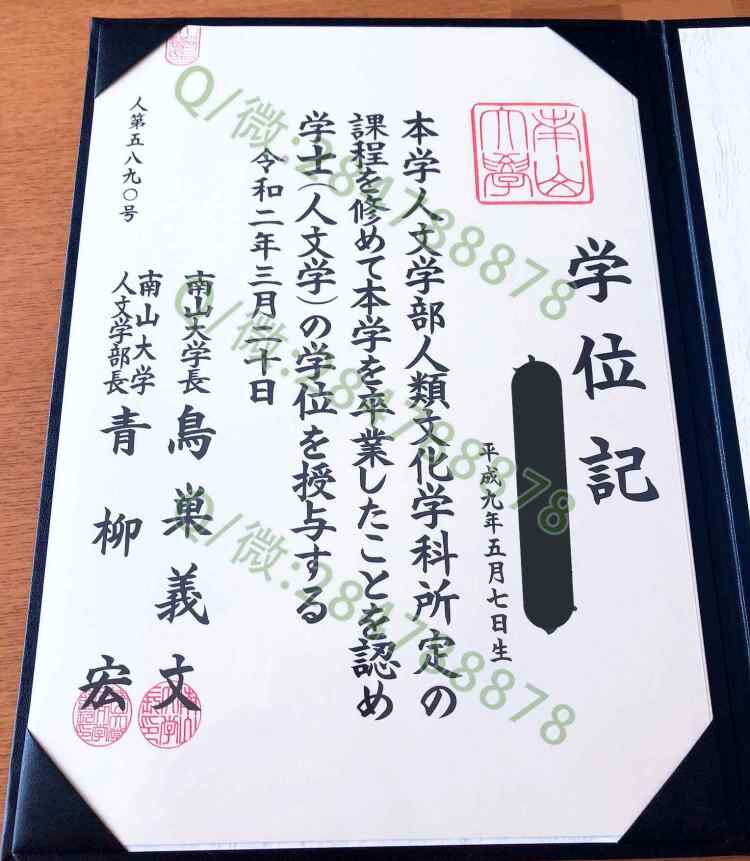 学位記
平成九年五月七日生
本学人文学部人類文化学科所定の
課程を修めて本学を卒業したことを認め
学士(人文学)の学位を授与する
令和二年三月二十日
南山大学長 鳥巣義文
南山大学
人文学部長 青柳宏
人第五八九〇号
南山大学
Q/微:284788878
Q/微:284788878
Q/微:284788878